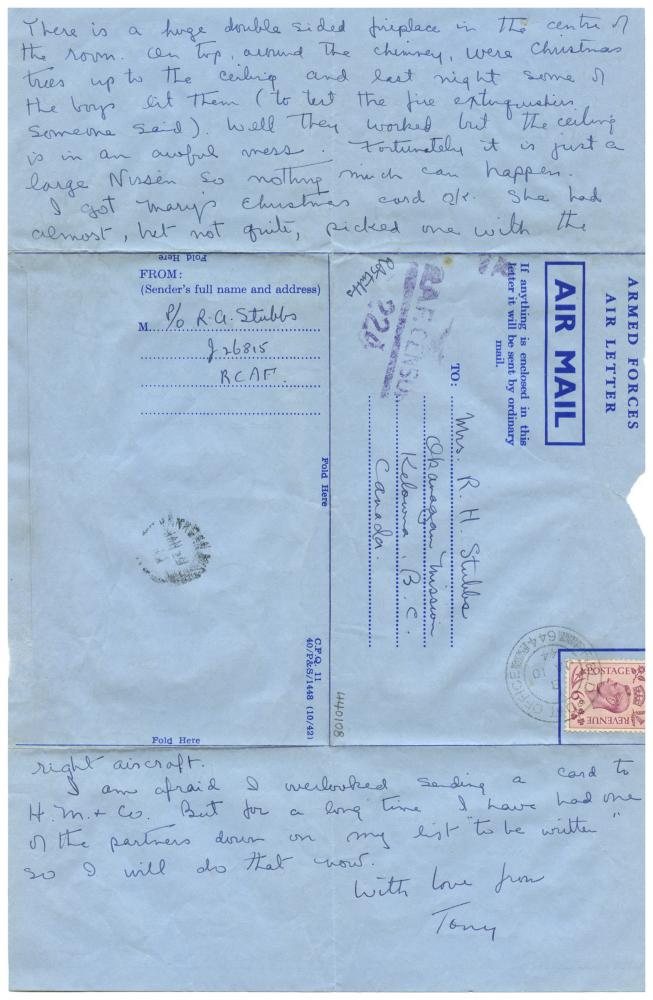 There is a huge double sided fireplace in the centre of
the room. On top, around the chimney, were Christmas
trees up to the ceiling and last night some of
the boys lit them (to test the fire extinguishers
someone said). Well they worked but the ceiling
is in an awful mess. Fortunately it is just a
large Nissen so nothing much can happen.
I got Mary's Christmas card O/K. She had
almost, but not quite, picked one with the
Fold Here
FROM:
(Sender's full name and address)
M. P/O R.A. Stubbs
J 26815
RCAF.
Fold Here
C.F.Q. 11
40/P&S/1448 (10/42)
Fold Here
ARMED FORCES
AIR LETTER
AIR MAIL
If anything is enclosed in this
letter it will be sent by ordinary
mail.
RAStubbs
R.A.F. CENSOR
224
TO: Mrs. R. H. Stubbs
Okanagan Mission
Kelowna, B.C.
Canada.
POSTAGE
REVENUE
6D
440108
right aircraft.
I am afraid I overlooked sending a card to
H.M. + Co. But for a long time I have had one
of the partners down on my list "to be written"
so I will do that now.
With love from
Tony